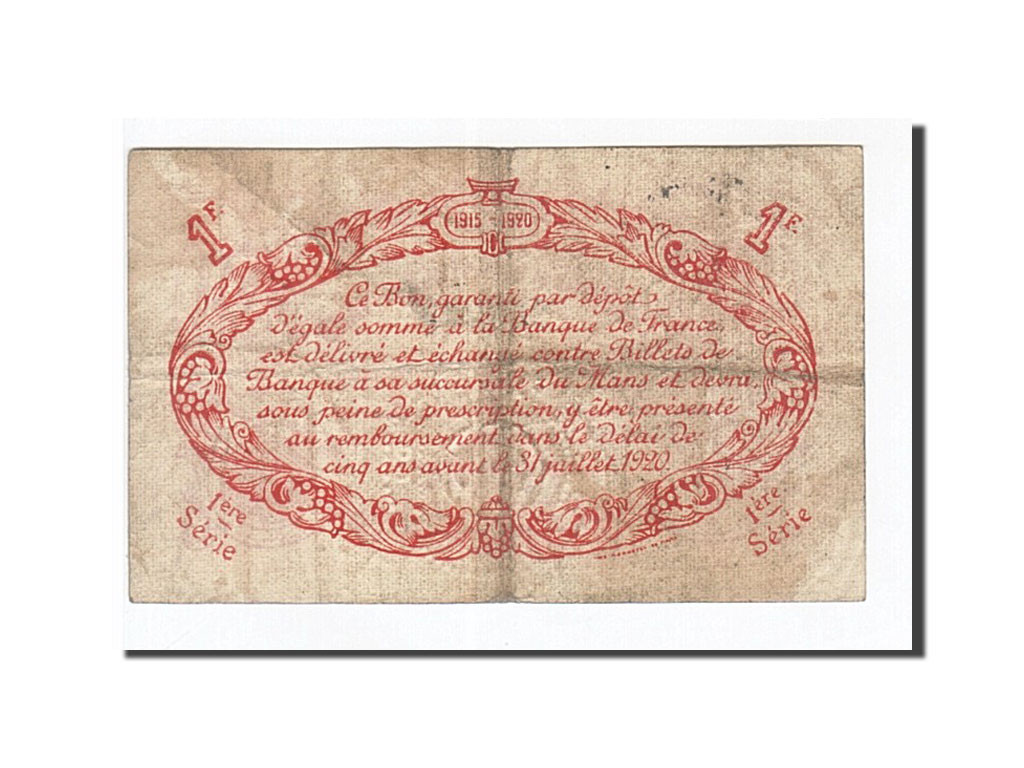 1F.
1915 - 1920
1F.
Ce Bon, garanti par dépôt
d'égale somme à la Banque de France,
est délivré et échangé contre Billets de
Banque à sa succursale du Mans et devra,
sous peine de prescription, y être présenté
au remboursement dans le délai de
cinq ans avant le 31 juillet 1920.
1ère
Série
1ère
Série